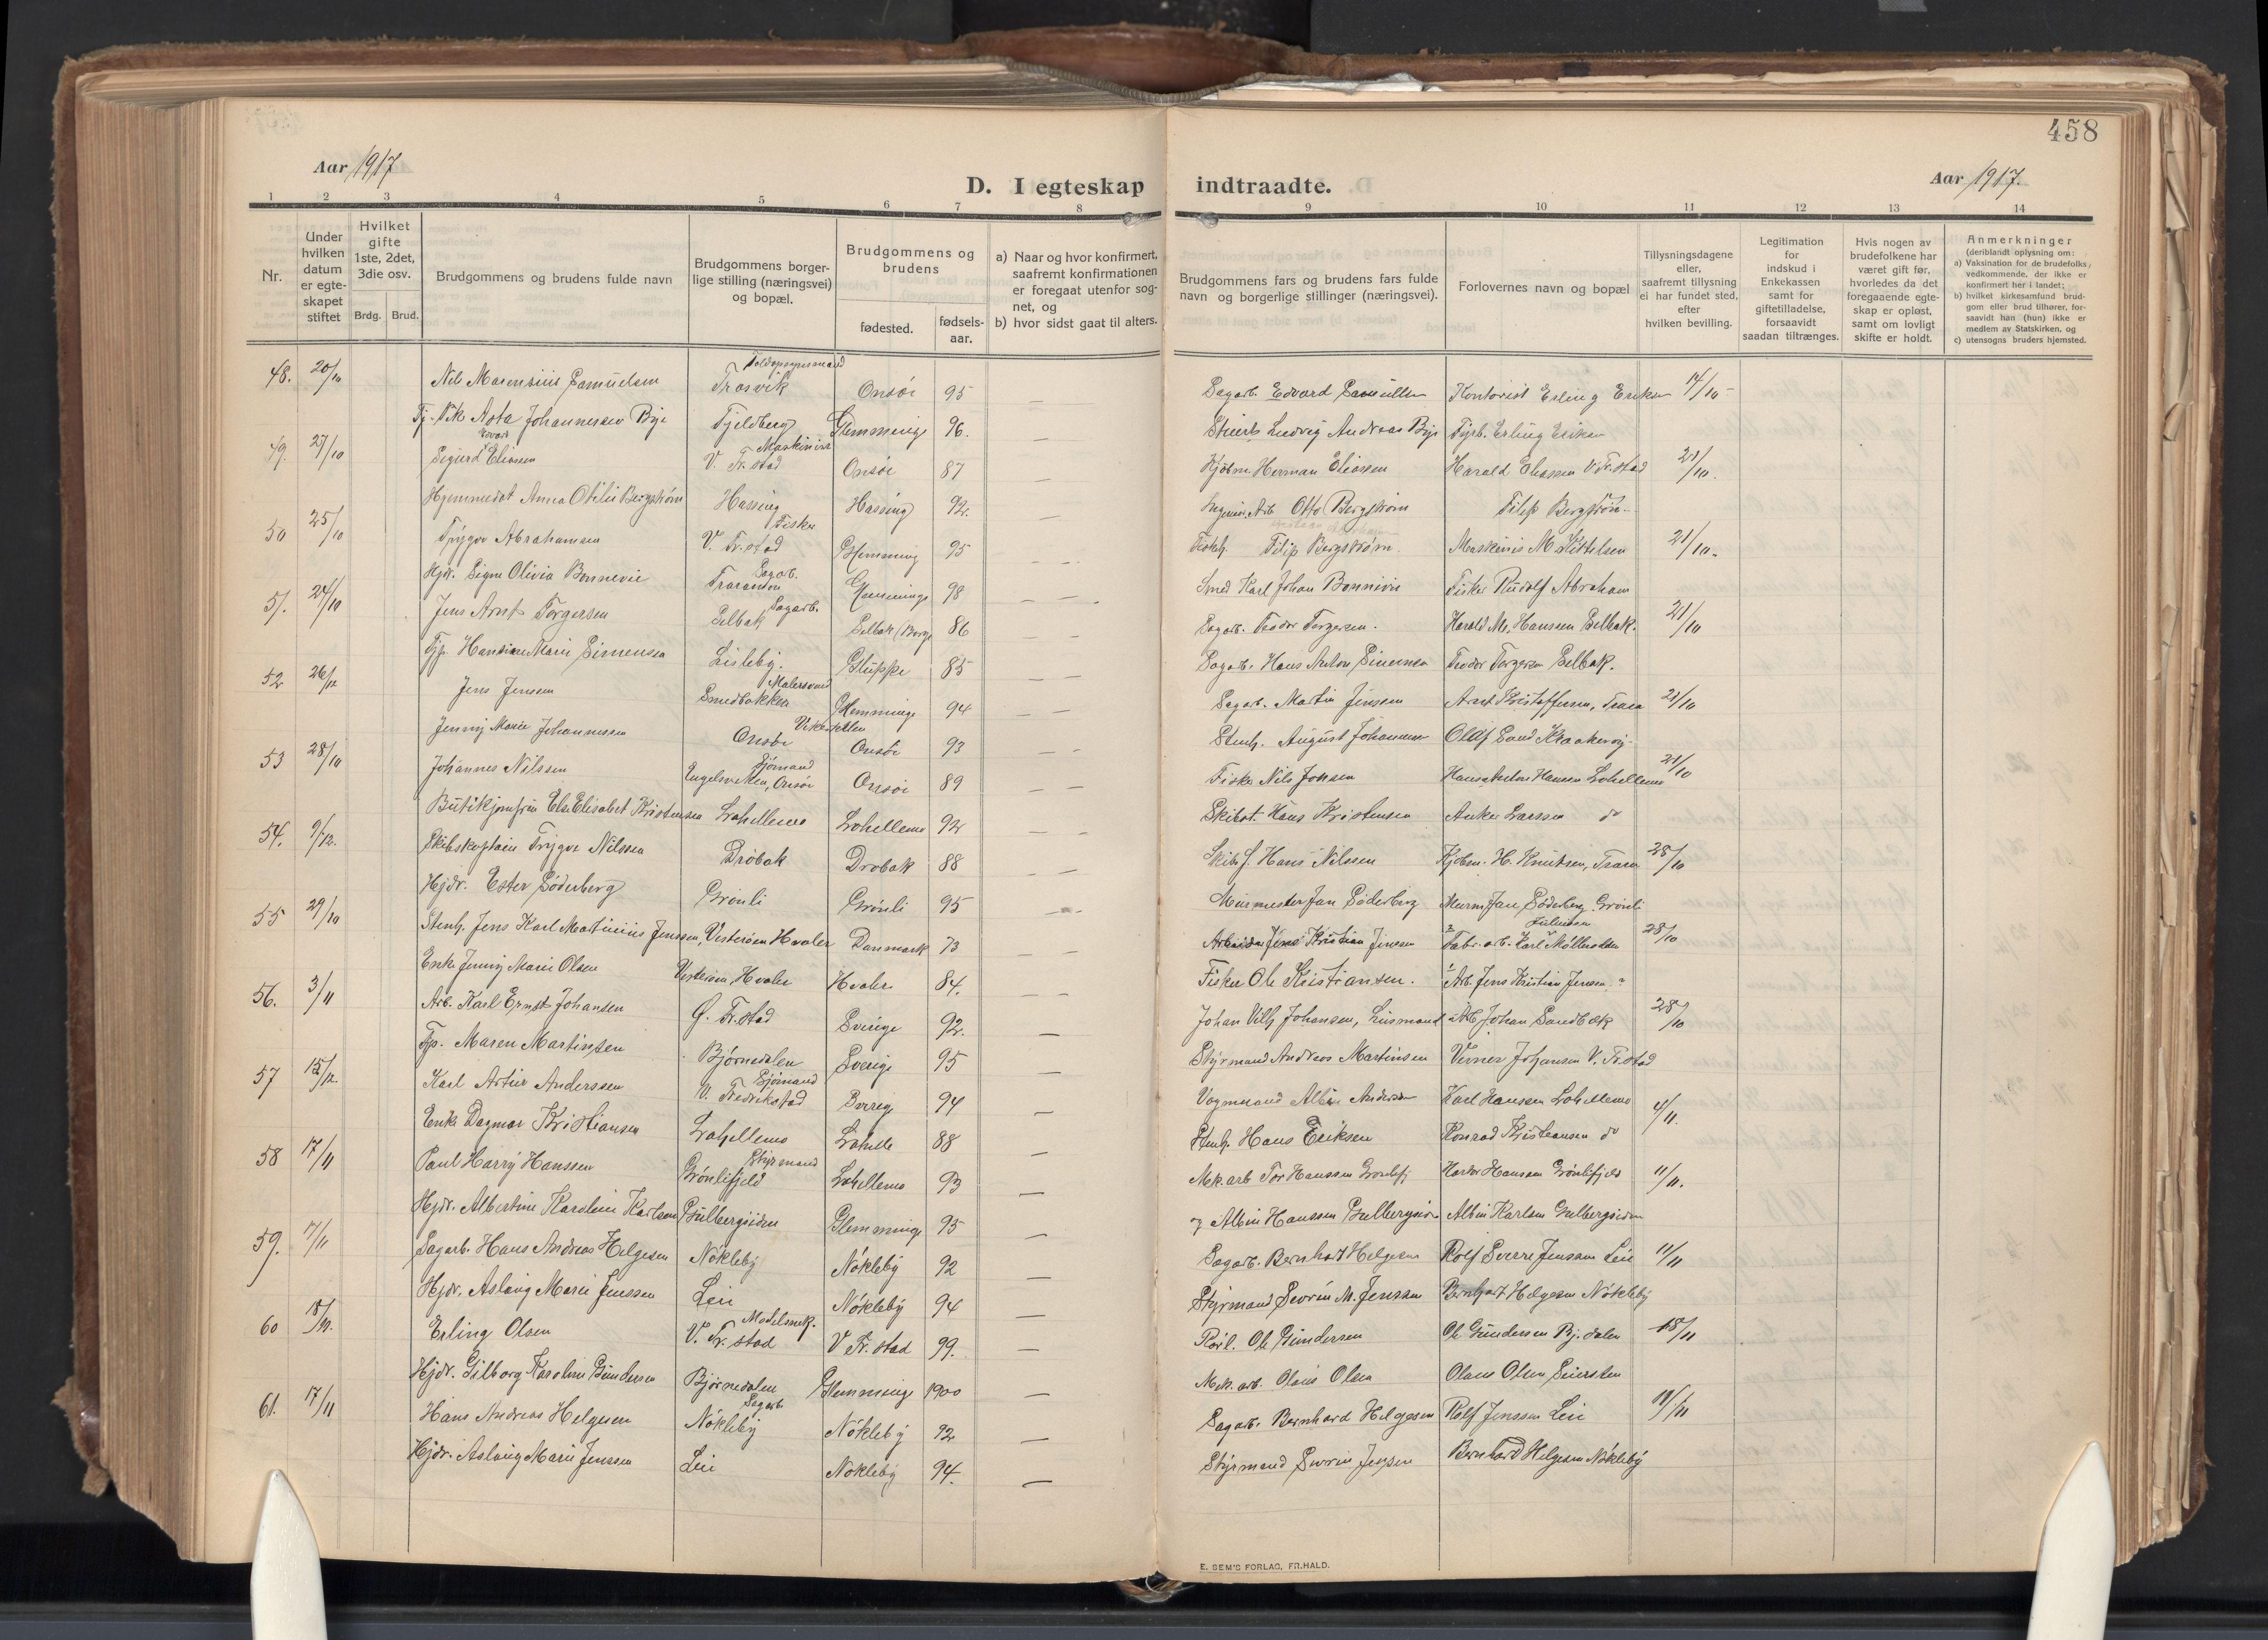 458
Aar 1917
D. I egteskap indtraadte.
Aar 1917.
1 2 3 4 5 6 7 8 9 10 11 12 13 14
Nr.
Under hvilken datum er egteskapet stiftet
Hvilket gifte 1ste, 2det, 3die osv.
Brdg. Brud.
Brudgommens og brudens fulde navn
Brudgommens borgerlige stilling (næringsvei) og bopæl.
Brudgommens og brudens
fødested. fødselsaar.
a) Naar og hvor konfirmert, saafremt konfirmationen er foregaat utenfor sognet, og
b) hvor sidst gaat til alters.
Brudgommens fars og brudens fars fulde navn og borgerlige stillinger (næringsvei).
Forlovernes navn og bopæl
Tillysningsdagene eller, saafremt tillysning ei har fundet sted, efter hvilken bevilling.
Legitimation for indskud i Enkekassen samt for giftetilladelse, forsaavidt saadan tiltrænges.
Hvis nogen av brudefolkene har været gift før, hvorledes da det foregaaende egteskap er opløst, samt om lovlig skifte er holdt.
Anmerkninger
(deriblandt oplysning om:
a) Vaksination for de brudefolks vedkommende, der ikke er konfirmert her i landet;
b) hvilket kirkesamfund brudgom eller brud tilhører, forsaavidt han (hun) ikke er medlem av Statskirken, og
c) utensogns bruders hjemsted.
48. 20/10 Nils Marensius Samuelsen Toldopsynsmand Trosvik Onsøi 95 — Sagarb. Edvard Samuelsen Kontorist Erling Eriksen 14/10
Asta Johannessen Bye Fjeldberg Glemminge 96. — Ludvig Andreas Bye Fyrb. Erling Eriksen
49. 27/10 Sigurd Eliassen Maskinist V. Fr.stad Onsøi 87 — Kjøbm. Herman Eliassen Harald Eliassen V. Fr.stad 21/10.
Hjemmedat Anna Otilie Bergstrøm Hassing Hassing 92. — Otto Bergstrøm Filip Bergstrøm
50 25/10 Trygve Abrahamsen Fisker V. Fr.stad Glemming 95 — Filip Bergstrøm. Maskinis M. Kittelsen 21/10.
Hjdr. Signe Olivia Bonnevie Glemminge 98 — Smed Karl Johan Bonnivie Fisker Rudolf Abraham
51. 24/10 Jens Arnt Torgersen Sagarb. Selbak Selbak Borge 86 — Sagarb. Teodor Torgersen. Harald M. Hanssen Selbak. 21/10
Hansine Marie Simensen Lisleby. Gluppe 85 — Sagarb. Hans Anton Simensen Teodor Torgersen Selbak.
52 26/12 Jens Jenssen Malersvend Smedbakken Glemminge 94 — Sagarb. Martin Jenssen Arnt Kristoffersen, Trara 21/10
Jenny Marie Johannessen Onsøi Onsøi 93 — Stenh. August Johannessen Olaf Sand Kraakerøy
53 28/10 Johannes Nilssen Sjømand Engelsviken, Onsøi Onsøi 89 — Fisker Nils Jonsen Hans Anton Hansen Lahellemo 21/10
Butikjomfru Else Elisabet Kristensen Lahellemo Lahellemo 92 — Hans Kristensen Anker Larssen do
54. 9/12. Skibskaptein Trygve Nilssen Drøbak Drøbak 88 — Hans Nilssen Kjøbm. H. Knutsen, Trara 28/10
Hjdr. Ester Søderberg Grønli Grønli 95 — Murmester Jan Søderberg Murm Jan Søderberg Grønli
55 29/10 Stenh. Jens Karl Martinius Jenssen, Vesterøen Hvaler Danmark 73 — Arbeider Jens Kristian Jenssen 2 Fabr. arb. Karl Julius Møllerodden 28/10
Enke Jenny Marie Olsen Vesterøen, Hvaler Hvaler 84. — Fisker Ole Kristiansen. 1 Arb. Jens Kristian Jenssen
56. 3/11 Arb. Karl Ernst Johansen Ø. Fr.stad Sverige 92. — Johan Vilh. Johansen, Arb. Johan Sandbæk 28/10
Maren Martinsen Bjørnedalen Sverige 95 — Styrmand Andreas Martinsen Verner Johansen V. Fr.stad
57 15/12. Karl Artur Anderssen Sjømand V. Fredrikstad Sverige 94 — Vognmand Albin Anderssen Karl Hanssen Lahellemo 4/11.
Enke Dagmar Kristiansen Lahellemo Lahelle 88 — Stenh. Hans Eriksen Konrad Kristiansen do
58 17/11 Paul Harry Hanssen Styrmand Grønlifjeld Lahellemo 93 — Mek. arb Tor Hanssen Grønlifj Hardor Hanssen Grønlifjeld 11/11.
Hjdr. Albertine Karoline Karlsen Gulbergsiden Glemminge 95 — Albin Hanssen Gulbergsiden Albin Karlsen Gulbergsiden
59. 17/11 Sagarb. Hans Andreas Helgesen Nøkleby Nøkleby 92 — Sagarb. Bernhart Helgesen Rolf Sverre Jenssen Leie 11/11
Hjdr. Aslaug Marie Jenssen Leie Nøkleby 94 — Styrmand Severin M. Jenssen Bernhart Helgesen Nøkleby
60 Erling Olsen Modelsnek. V. Fr. stad V Fr. stad 99. — Ole Gundersen Ole Gundersen Bj. dalen 18/11
Hjdr. Gilborg Karoline Gundersen Bjørnedalen Glemminge 1900 — Mek. arb. Olaus Olsen Olaus Olsen
61. 17/11 Hans Andreas Helgesen Sagarb. Nøkleby Nøkleby 92 — Sagarb. Bernhard Helgesen Rolf Jenssen Leie 11/11
Hjdr. Aslaug Marie Jenssen Leie Nøkleby 94. — Styrmand Severin Jenssen Bernhard Helgesen Nøkleby
E. SEM'S FORLAG, FR.HALD.